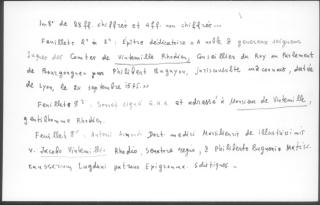 In 8° de 28 ff. chiffrés et 4 ff. non chiffrés...
Feuillets 2° à 8° : Épitre dédicatoire « A noble & genereus seigneur
Jaques des Comtes de Vintemille Rhodien, Conseillier du Roy au Parlement
de Bourgongne » par Philibert Bugnyon, jurisconsulte maconnois, datée
de Lyon, le 20 septembre
Feuillet 8° : Sonnet signé et adressé à Monsieur de Vintemille,
gentilhomme Rhodien.
Feuillet 8° : Antonii Dect. medici de illustrissimis
v. Jacobo Vintemillio Rhodio, Senatore regio, & Philiberto Bugnonio
Lugduni patrono Epigramma.